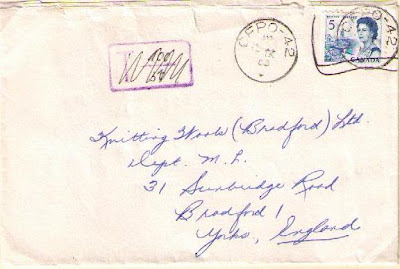 CFPO-42
5
CFPO-42
CANADA
Knitting Wools (Bradford) Ltd.
Dept. M.L.
31 Sunbridge Road
Bradford 1
Yorks, England